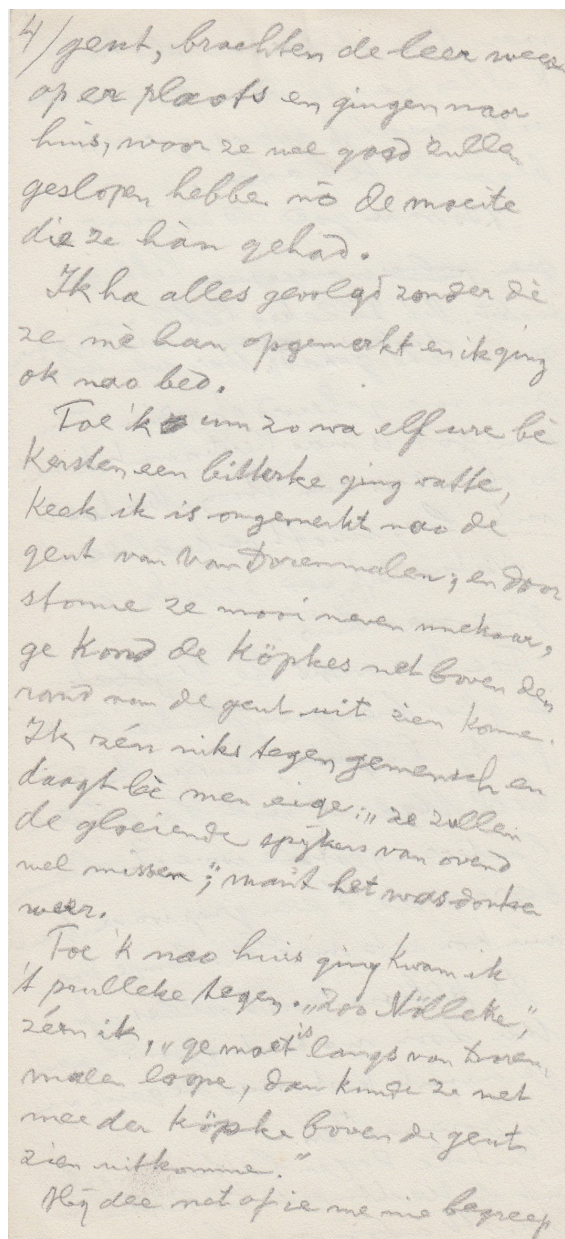 4/ gent, brachten de leer weer
op er plaats en gingen naor
huis, waor ze wel goed zullen
geslopen hebben nò de moeite
die ze hàn gehad.
Ik ha alles gevolgd zonder dè
ze mè han opgemerkt en ik ging
ok nao bed.
Toe 'k um zo wa elf ure bè
Kersten een bitterke ging vatte,
keek ik is ongemerkt nao de
gent van Van Dorenmalen; en door
stonne ze mooi neven mekaar,
ge kond de köpkes net boven den
rand van de gent uit zien komme.
Ik zén niks tegen gemensch en
daagt bè men eige: „ze zullen
de gloeiende spijkers van ovend
wel missen”; want het was donker
weer.
Toe 'k nao huis ging kwam ik
't prulleke tegen. „Zoo Nölleke,”
zéen ik, „ge moet is langs van Doren
malen loope, dan kunde ze net
mee der köpke boven de gent
zien uitkomme.”
Hij dee net of ie me nie begreep